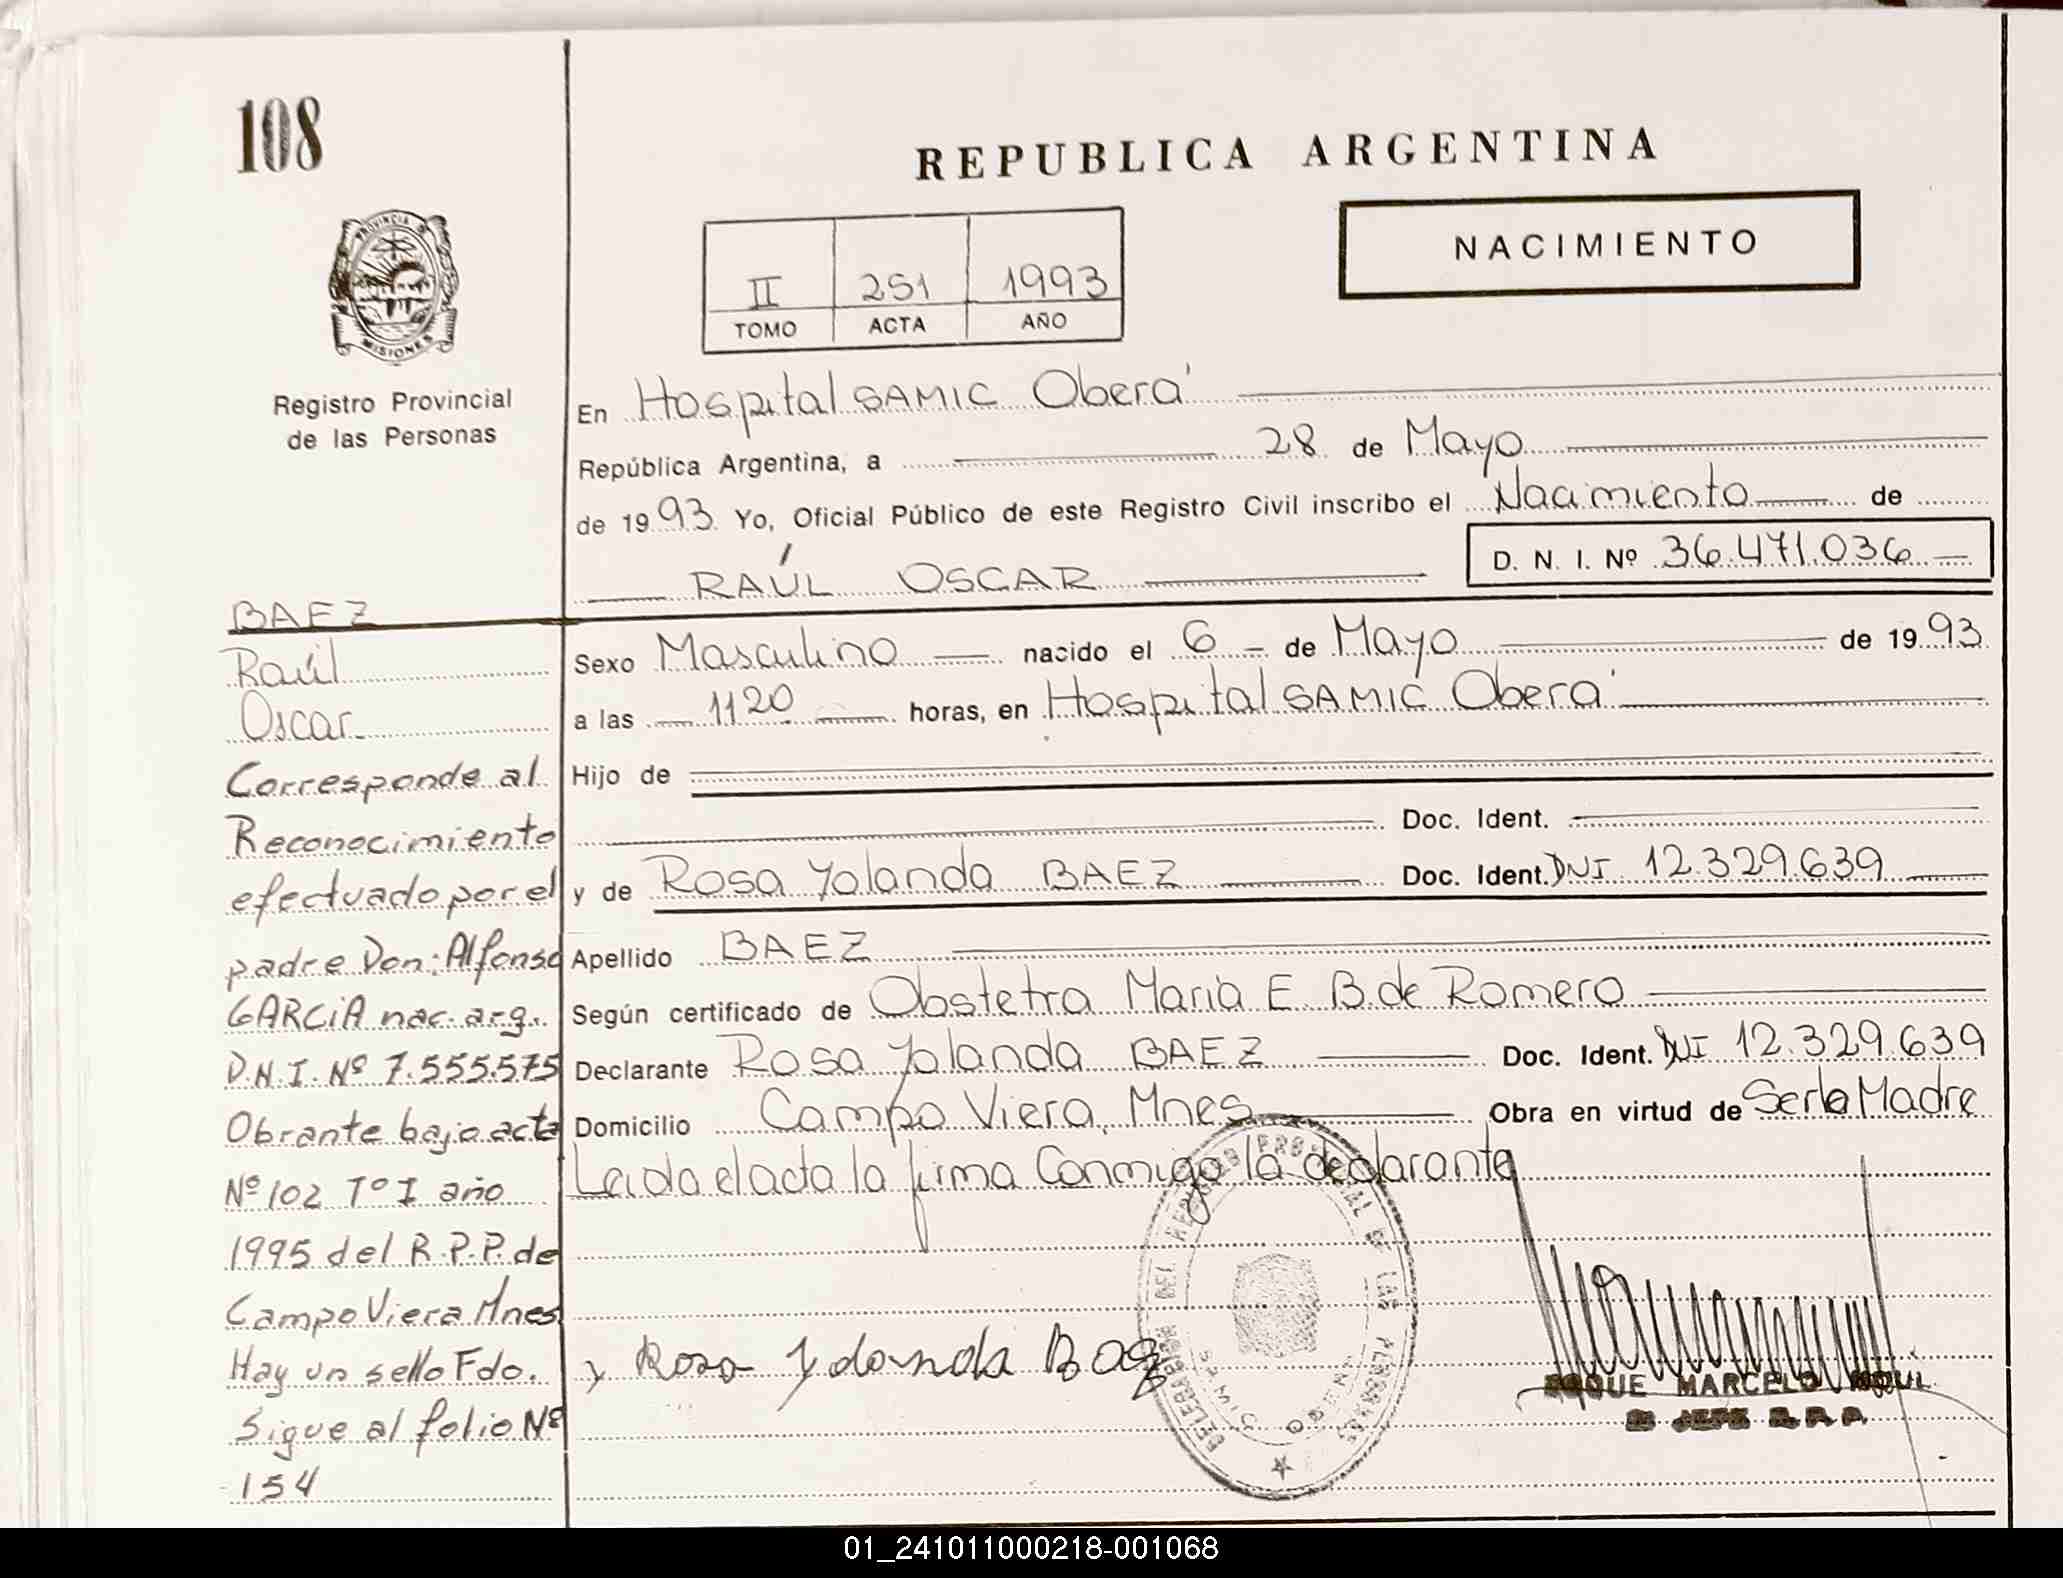 108
REPUBLICA ARGENTINA
NACIMIENTO
II 251 1993
TOMO ACTA AÑO
PROVINCIA DE
MISIONES
Registro Provincial
de las Personas
En Hospital SAMIC Oberá
República Argentina, a 28 de Mayo
de 1993 Yo, Oficial Público de este Registro Civil inscribo el Nacimiento de
D. N. I. Nº 36.471.036
RAÚL OSCAR
Sexo Masculino nacido el 6 de Mayo de 1993
a las 1120 horas, en Hospital SAMIC Oberá
Hijo de
Doc. Ident.
y de Rosa Yolanda BAEZ Doc. Ident. DNI 12.329.639
Apellido BAEZ
Según certificado de Obstetra Maria E B. de Romero
Declarante Rosa Yolanda BAEZ Doc. Ident. DNI 12.329.639
Domicilio Campo Viera, Mnes Obra en virtud de Ser la Madre
Leida el acta la firma Conmigo la declarante
y Rosa Yolanda Baez
MARCELO
JEFE R.P.P.
BAEZ
Raúl
Oscar
Corresponde al
Reconocimiento
efectuado por el
padre Don: Alfonso
GARCiA nac. arg.
D.N.I. Nº 7.555.575
Obrante bajo acta
Nº 102 Tº I año
1995 del R.P.P. de
Campo Viera Mnes
Hay un sello Fdo.
Sigue al folio Nº
154
01_241011000218-001068